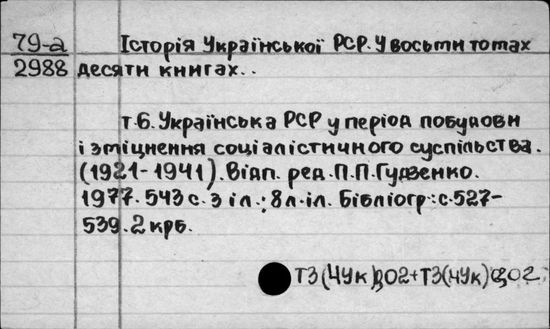 79-а Історія Української РСР. У восьми томах
2988 десяти книгах..
т.6. Українська РСР у період побудови
і зміцнення соціалістичного суспільства.
(1921-1941). Відп. ред. П.П.Гудзенко.
1977. 543 с. з іл.; 8 л. іл. Бібліогр.: с.527-
539. 2 крб.
Т3(4Ук)д02+Т3(4Ук)д02